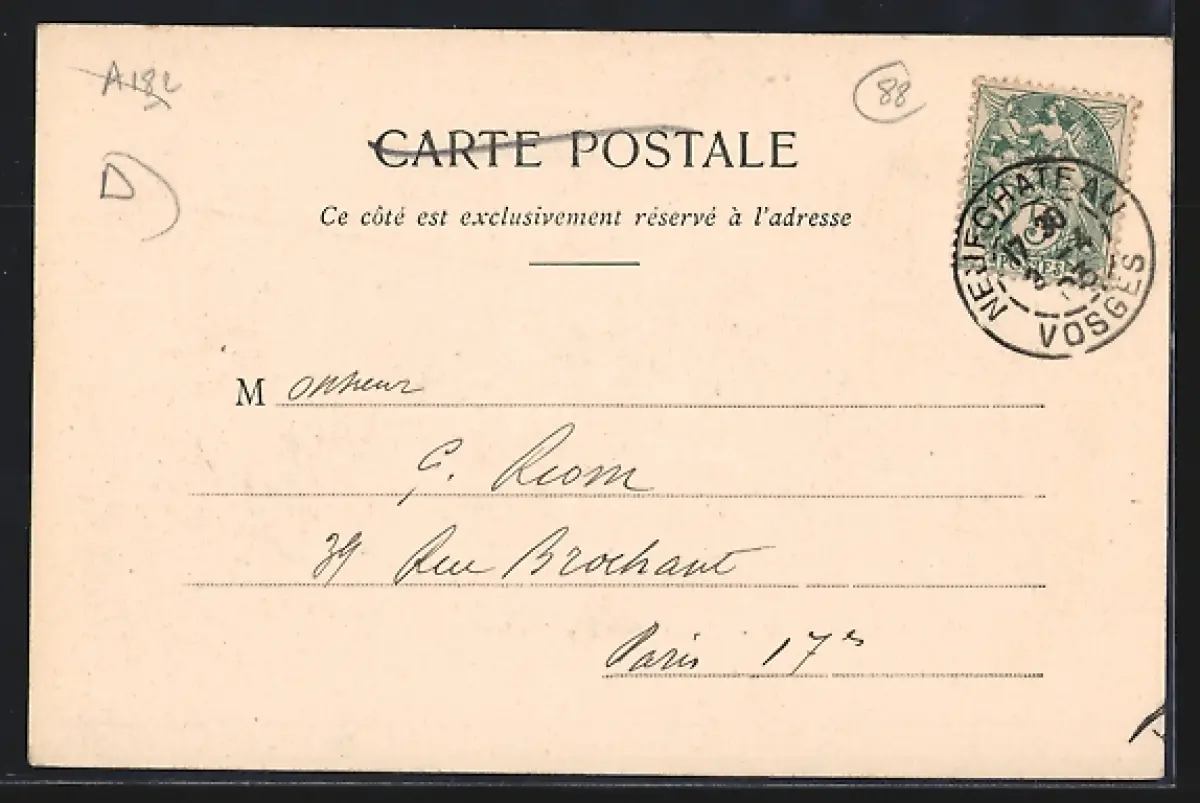 A182
88
D
CARTE POSTALE
Ce côté est exclusivement réservé à l'adresse
NEUFCHATEAU
VOSGES
17 30
5
POSTES
Monsieur
G. Riom
39 Rue Brochant
Paris 17es